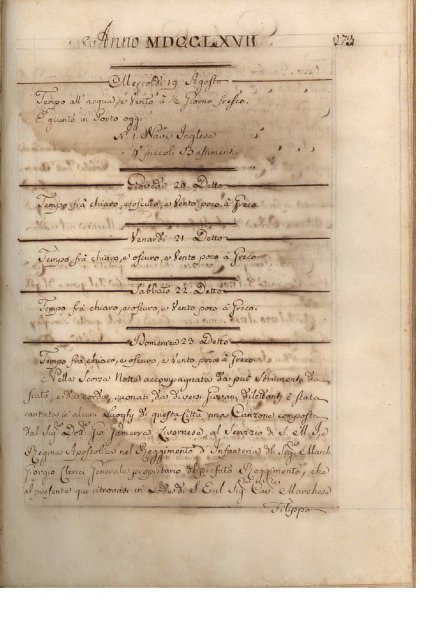 Anno MDCCLXVII
273
Mercoldì 19 Agosto
Tempo all'acqua, e Vento à ½ Giorno fresco.
È giunto in Porto oggi
N. 1 Nave Inglesa
4 piccoli Bastimenti
Giovedì 20 Detto
Tempo frà chiaro, e oscuro, e Vento poco à Greco.
Venardì 21 Detto
Tempo frà chiaro, e oscuro, e Vento poco à Greco
Sabbato 22 Detto
Tempo frà chiaro, e oscuro, e Vento poco à Greco.
Domenica 23 Detto
Tempo frà chiaro, e oscuro, e Vento poco à Greco.
Nella Scorsa Notte accompagnata da più Strumenti da
fiato, e da corda, suonati da diversi Giovani dilettanti è stata
cantata in alcuni Luoghi di questa Città una Canzone composta
dal Sig. Dott. Livornese al Servizio di S. M. I.
Regina Apostolica nel Reggimento d'Infanteria del Sig. March.
Giorgio Clerici Generale proprietario del prefato Reggimento, che
al presente qui ritrovasi in di S. Sig. Cav. Marchese
Filippo